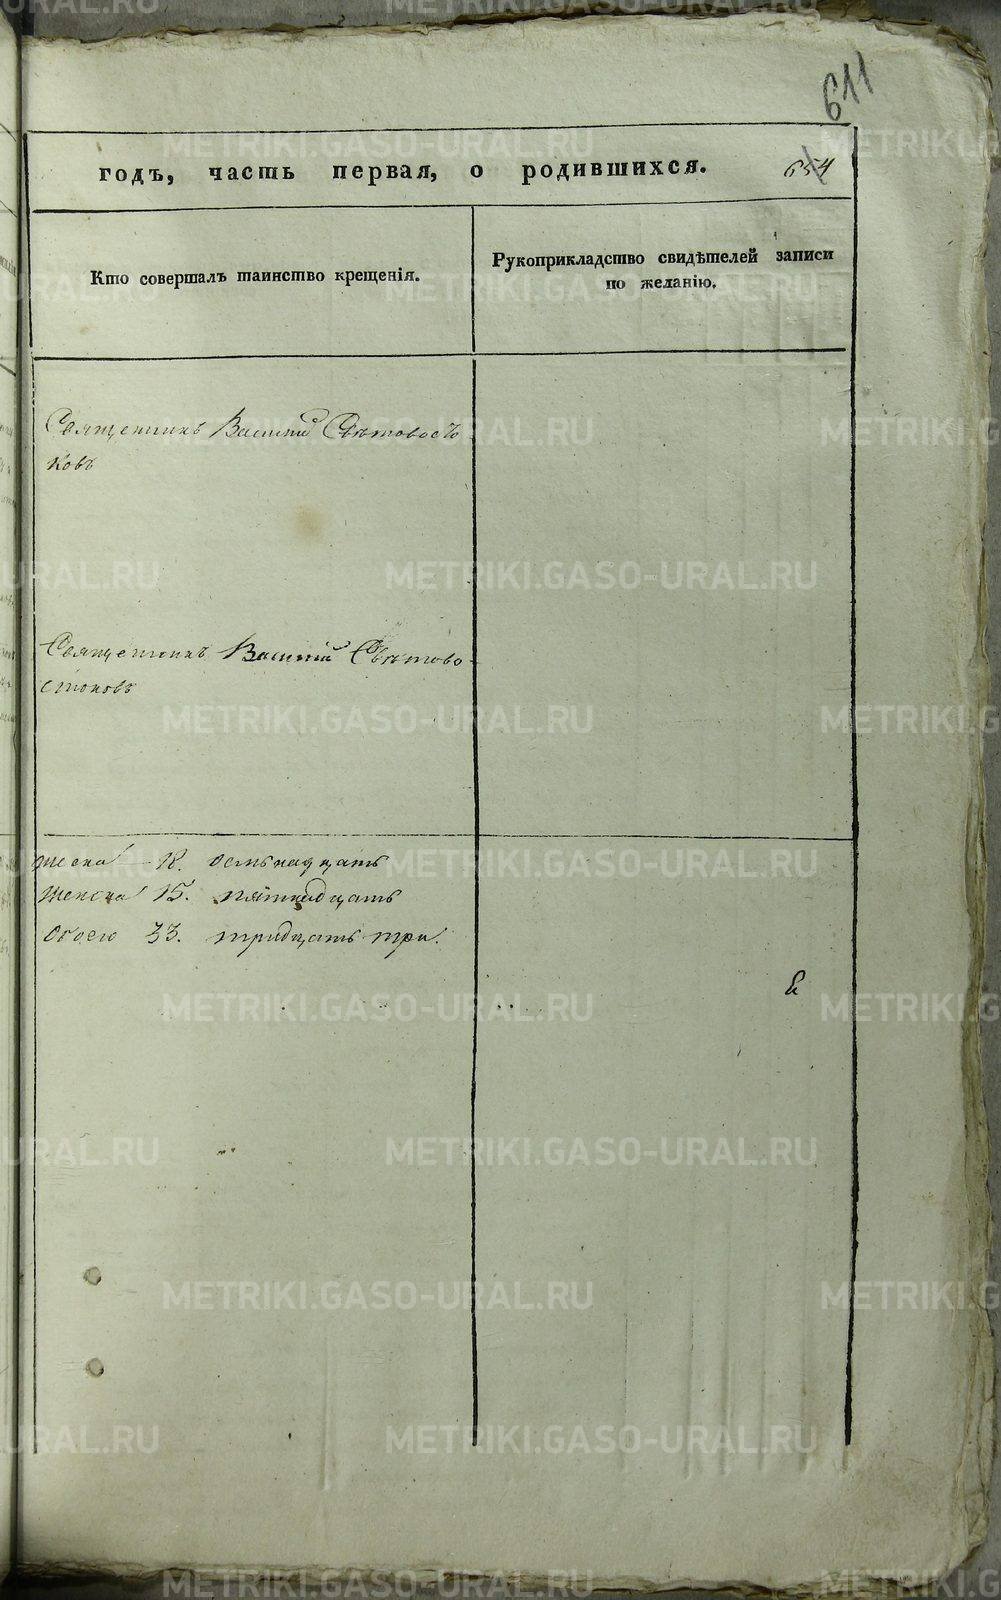 611
годъ, часть первая, о родившихся. 654
Кто совершалъ таинство крещенія.
Рукоприкладство свидѣтелей записи
по желанію.
Священникъ Василій Свѣтовостъ
ковъ
Священникъ Василій Свѣтово
стоковъ
18. осмьнадцать
женска 15. пятнадцать
Обоего 33. тридцать три.
METRIKI.GASO-URAL.RU